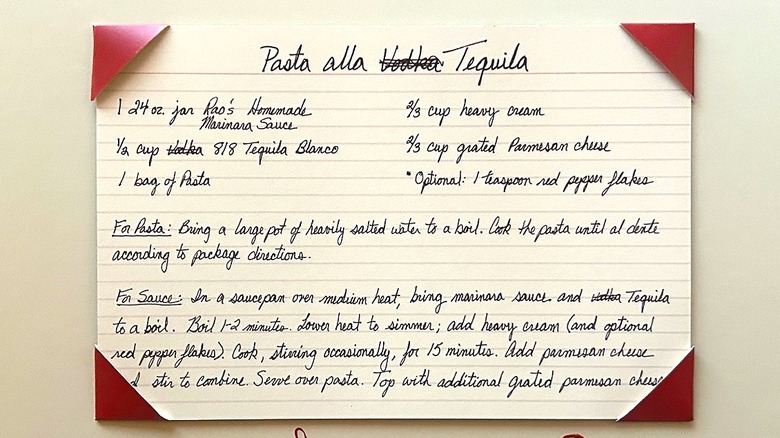 Pasta alla Vodka Tequila
1 24 oz. jar Rao's Homemade
Marinara Sauce
1/2 cup Vodka 818 Tequila Blanco
1 bag of Pasta
2/3 cup heavy cream
2/3 cup grated Parmesan cheese
*Optional: 1 teaspoon red pepper flakes
For Pasta: Bring a large pot of heavily salted water to a boil. Cook the pasta until al dente
according to package directions.
For Sauce: In a saucepan over medium heat, bring marinara sauce and vodka Tequila
to a boil. Boil 1-2 minutes. Lower heat to simmer; add heavy cream (and optional
red pepper flakes). Cook, stirring occasionally, for 15 minutes. Add parmesan cheese
stir to combine. Serve over pasta. Top with additional grated parmesan cheese